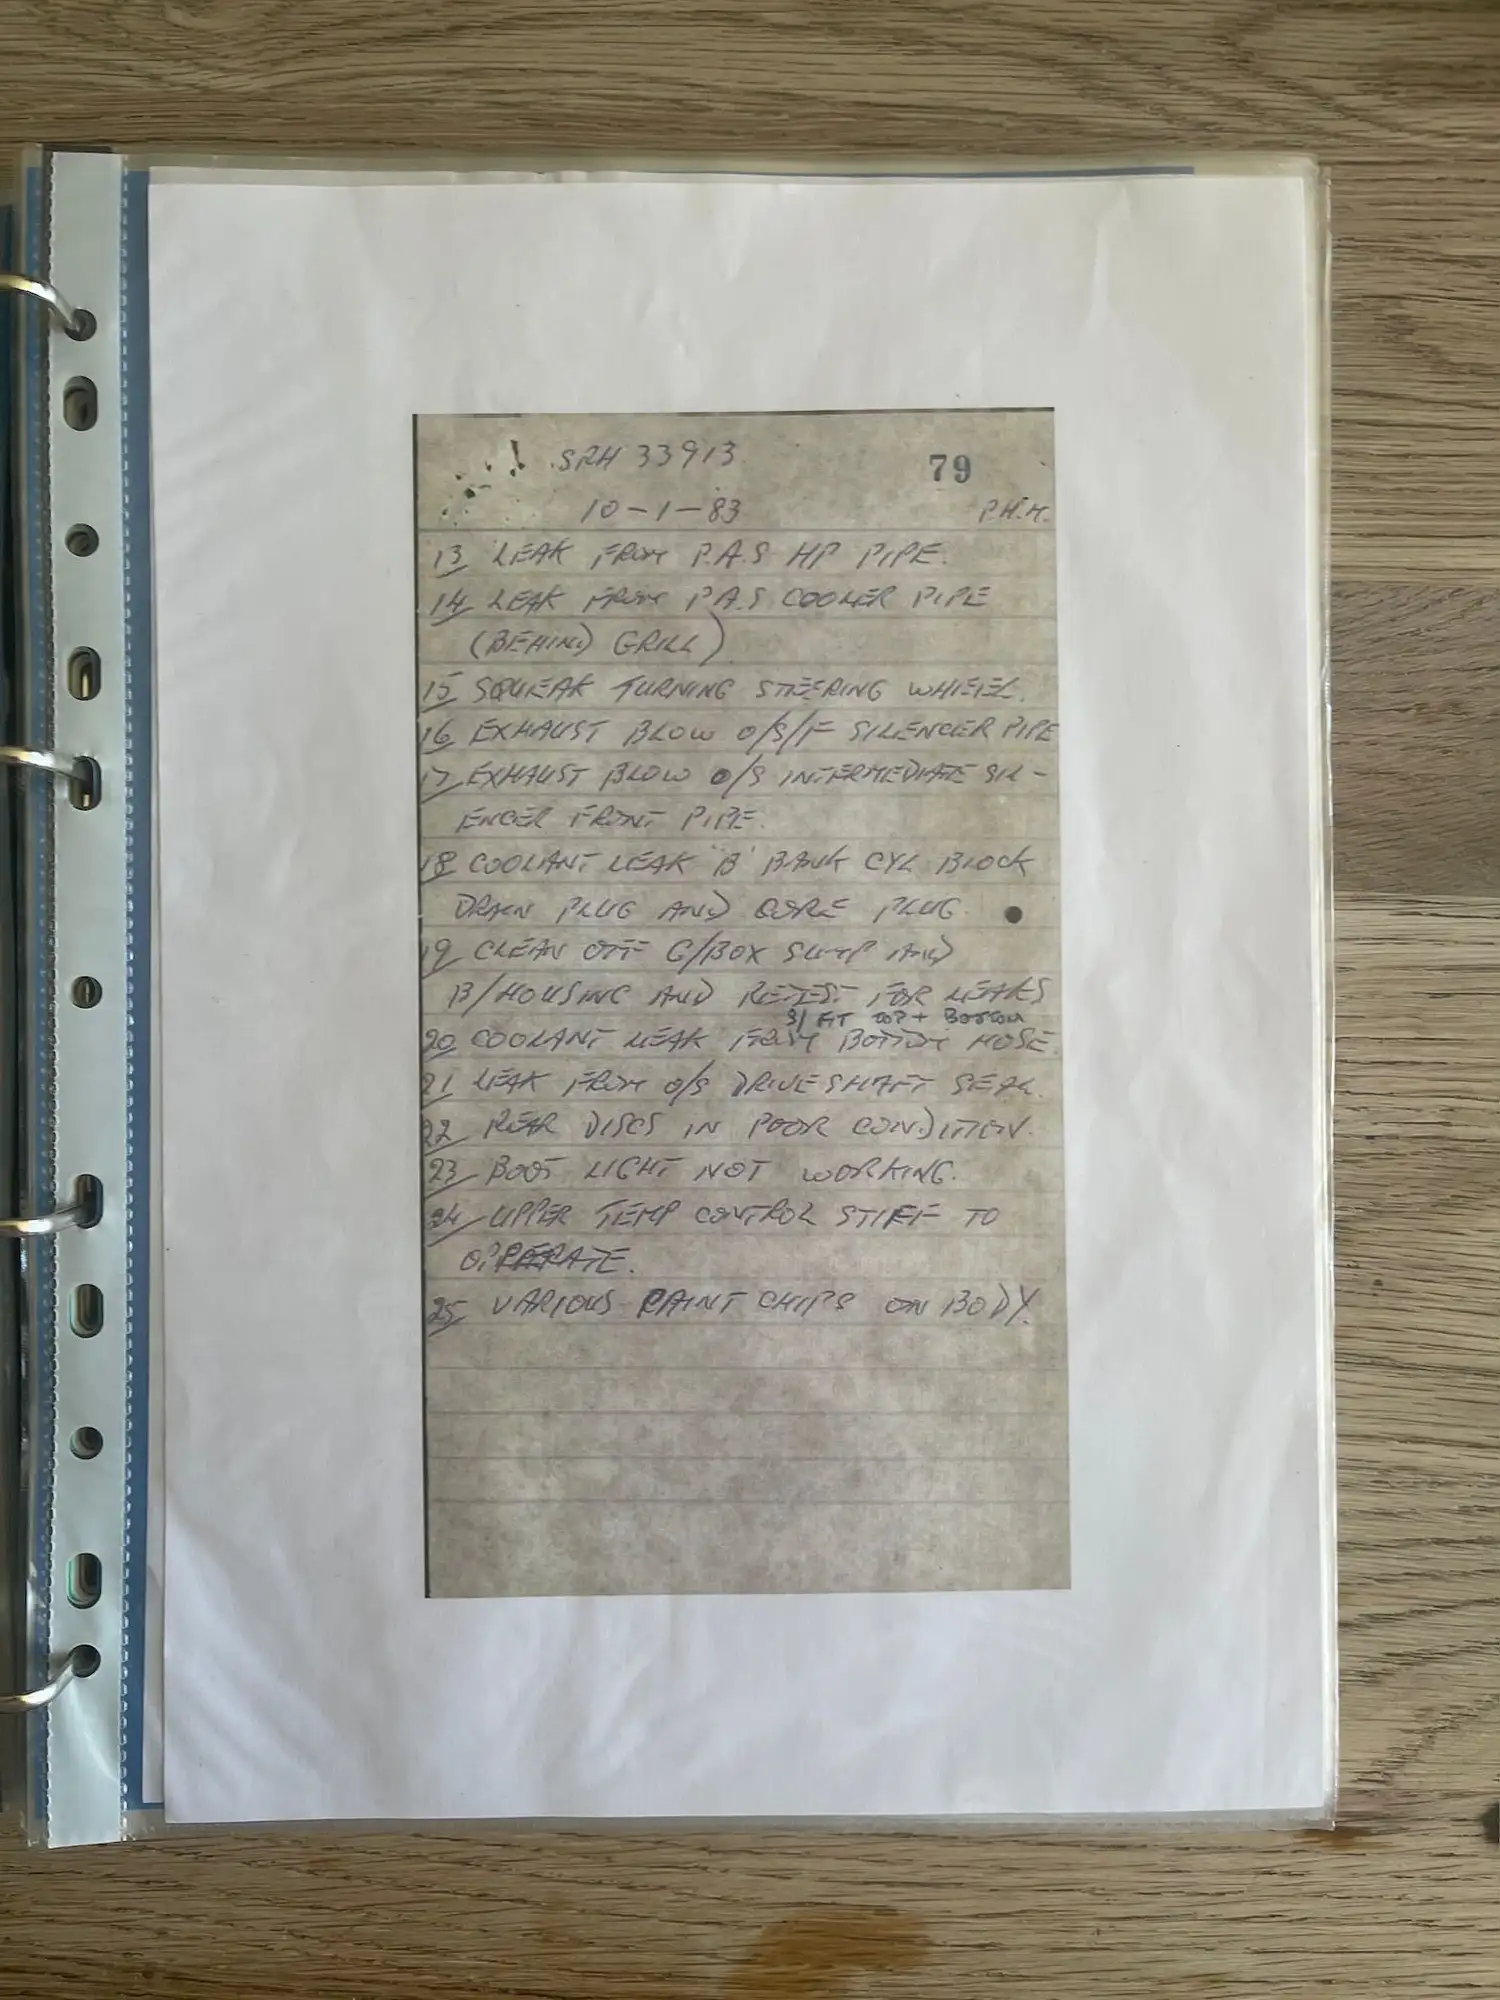 SRH 33913
79
10-1-83
P.H.M.
13 LEAK FROM P.A.S HP PIPE.
14 LEAK FROM P.A.S COOLER PIPE
(BEHIND GRILL)
15 SQUEAK TURNING STEERING WHEEL.
16 EXHAUST BLOW O/S/F SILENCER PIPE
17 EXHAUST BLOW O/S INTERMEDIATE SIL-
ENCER FRONT PIPE.
18 COOLANT LEAK "B" BANK CYL BLOCK
DRAIN PLUG AND CORE PLUG.
19 CLEAN OFF G/BOX SUMP AND
B/HOUSING AND RETEST FOR LEAKS
S/ FIT TOP + BOTTOM
20 COOLANT LEAK FROM BOTTOM HOSE.
21 LEAK FROM O/S DRIVESHAFT SEAL.
22 REAR DISCS IN POOR CONDITION.
23 BOOT LIGHT NOT WORKING.
24 UPPER TEMP CONTROL STIFF TO
OPERATE.
25 VARIOUS PAINT CHIPS ON BODY.